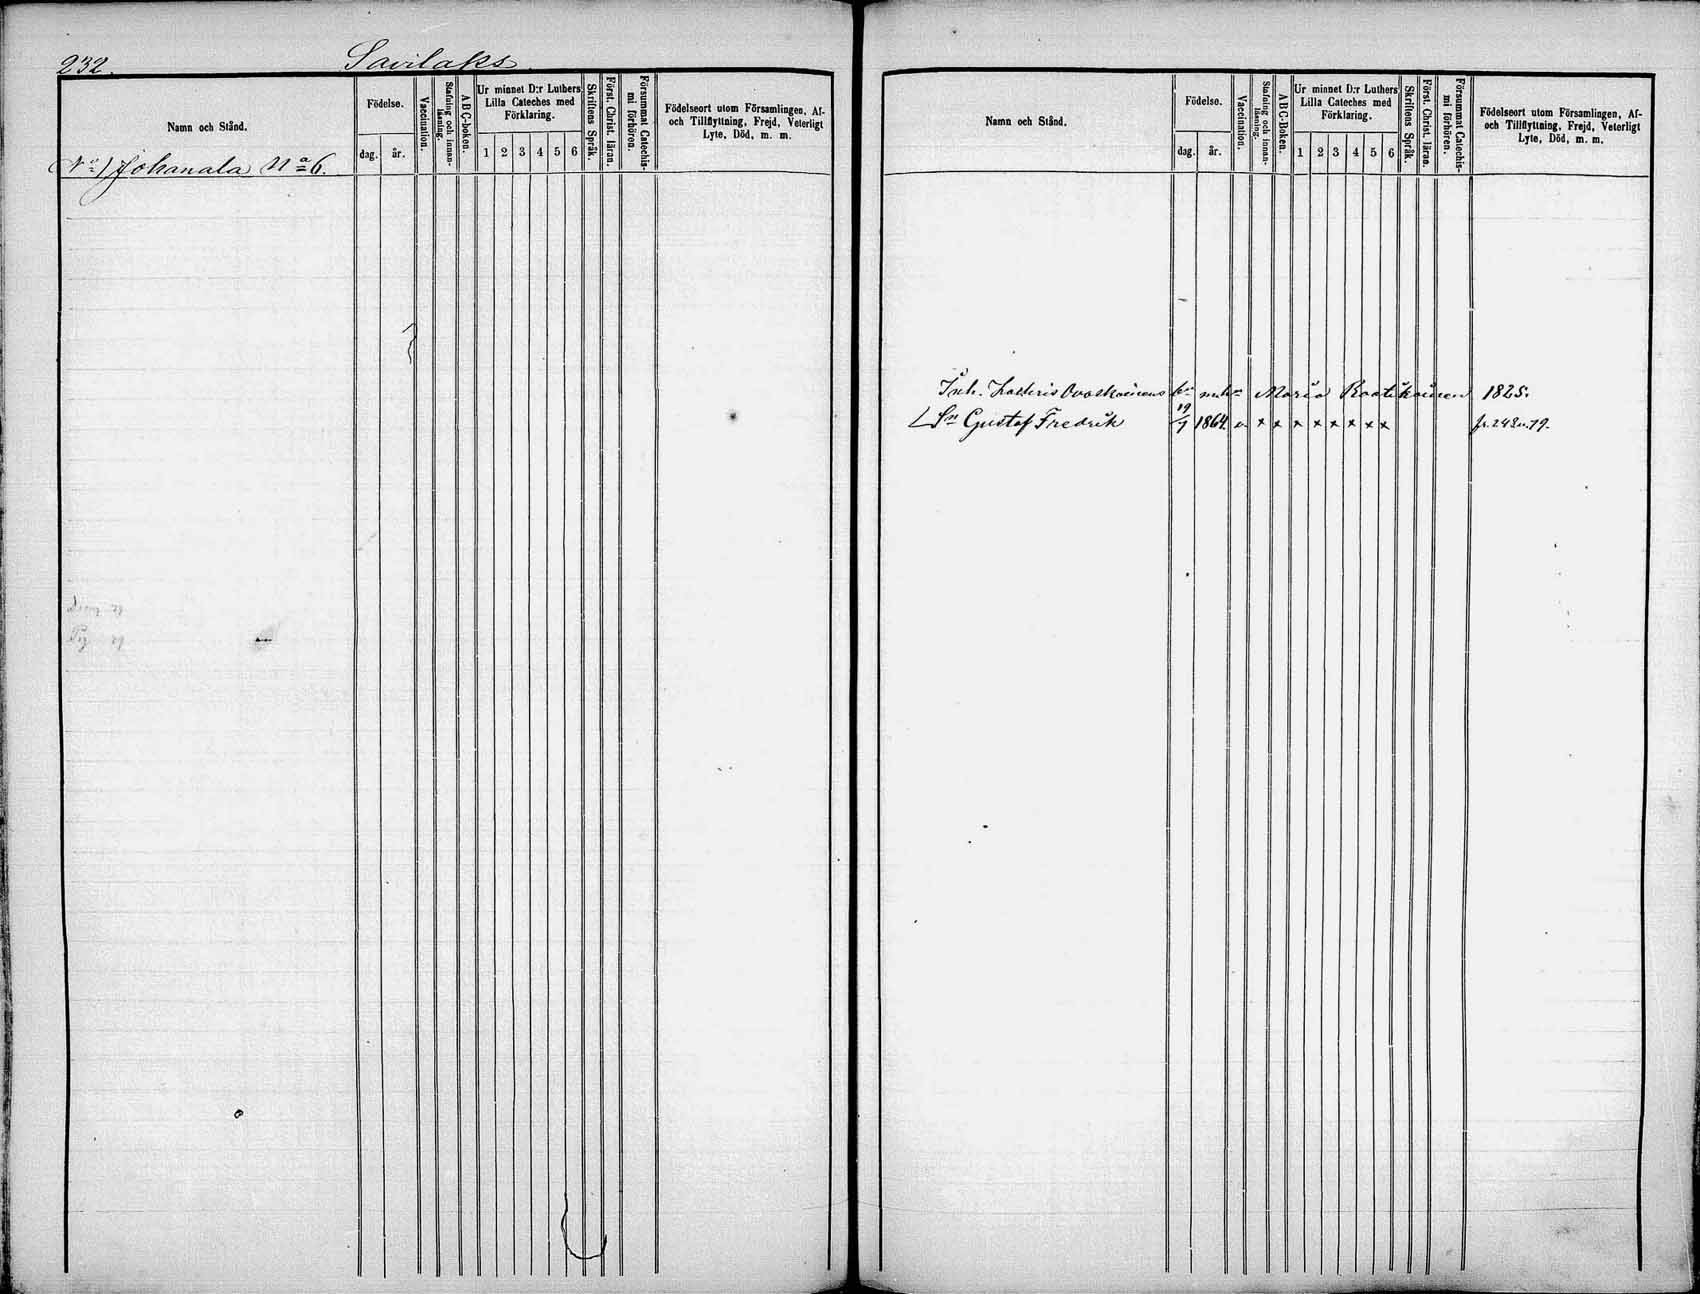 232. Savilaks
Namn och Stånd.
Födelse.
dag. år.
Vaccination.
Stafning och innan-läsning.
ABC-boken.
Ur minnet D:r Luthers
Lilla Cateches med
Förklaring.
1 2 3 4 5 6
Skriftens Språk.
Först. Christ. läran.
Försummat Catechis-
mi förhören.
Födelseort utom Församlingen, Af-
och Tillflyttning, Frejd, Veterligt
Lyte, Död, m. m.
Johanala No 6.
Namn och Stånd.
Födelse.
dag. år.
Vaccination.
Stafning och innan-läsning.
ABC-Boken.
Ur minnet D:r Luthers
Lilla Cateches med
Förklaring.
1 2 3 4 5 6
Skriftens Språk.
Först. Christ. läran.
Försummat Catechis-
mi förhören.
Födelseort utom Församlingen, Af-
och Tillflyttning, Frejd, Veterligt
Lyte, Död, m. m.
Inh. Maria Raatikainen 1825.
Sn Gustaf Fredrik 19/7 1864. v. x x x x x x x x fr. 242 79.